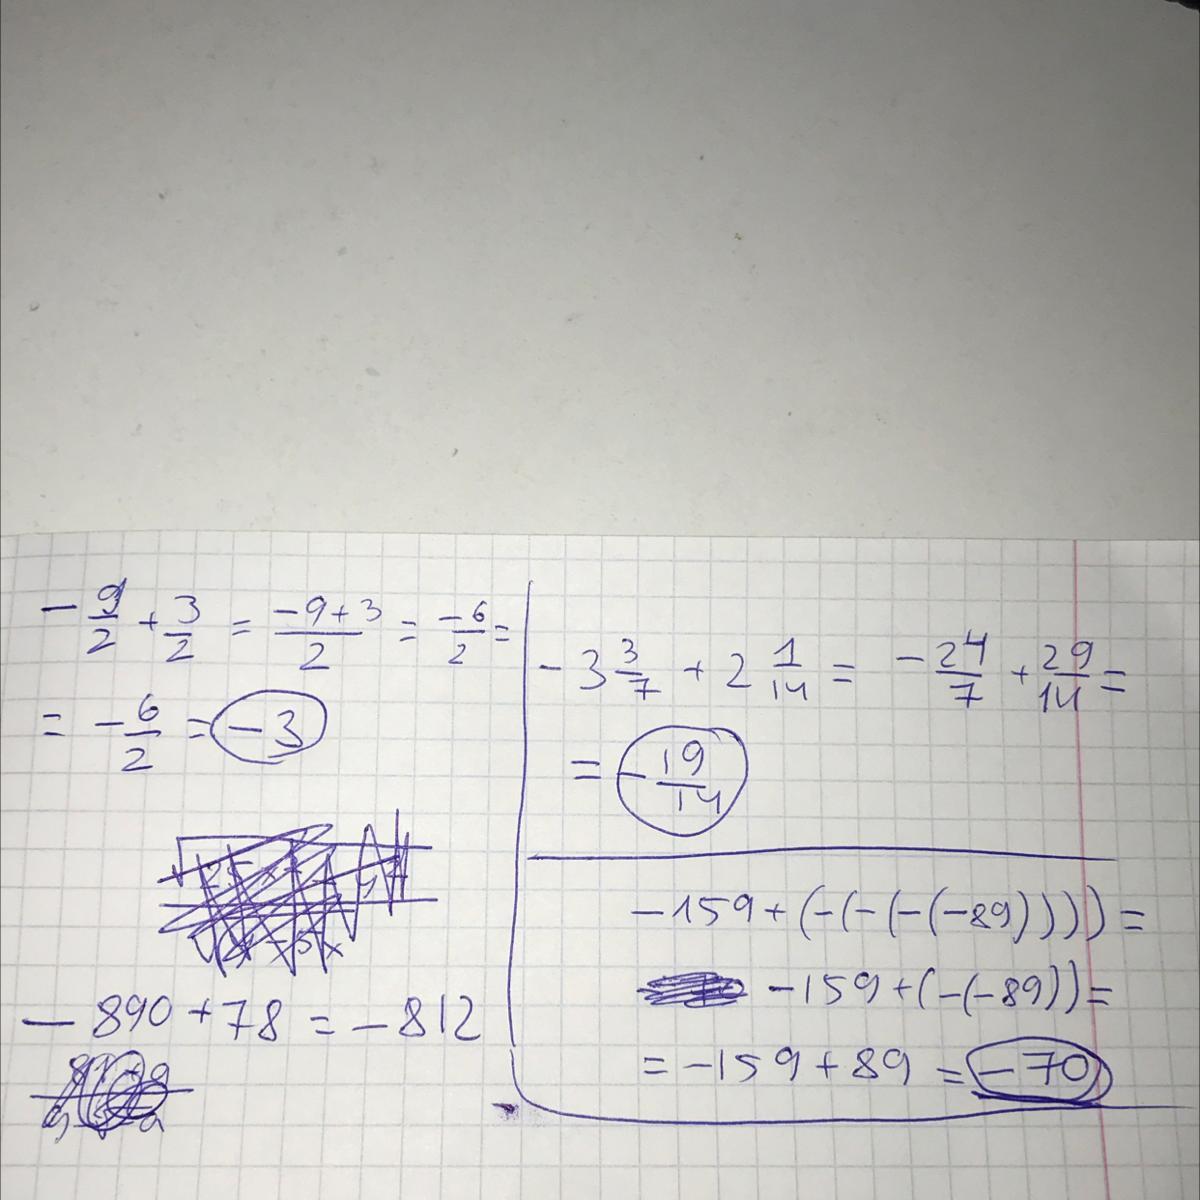 -9/2 + 3/2 = (-9+3)/2 = -6/2 =
= -6/2 = -3
-890+78 = -812
-3 3/7 + 2 1/14 = -24/7 + 29/14 =
= -19/14
-159+(-(-(-(-89)))) =
-159+(-(-89))=
= -159+89 = -70